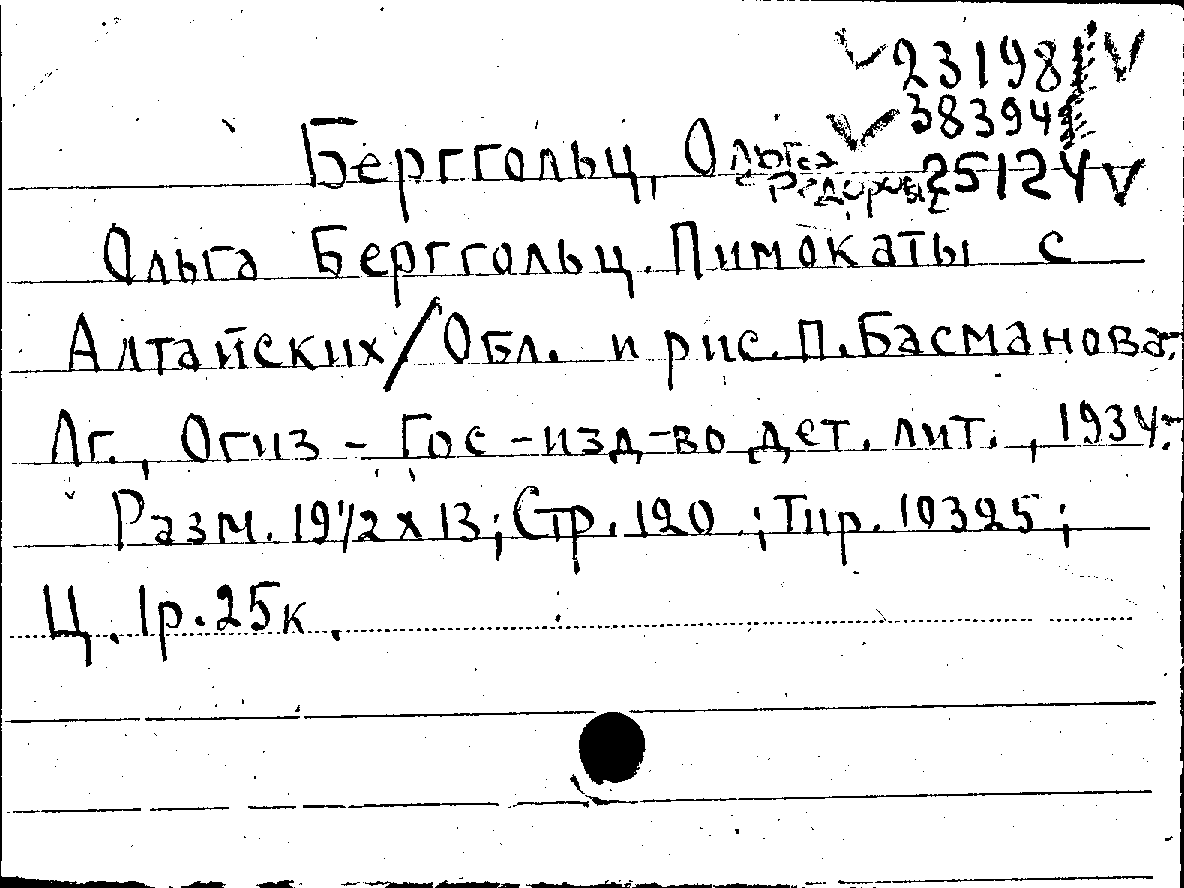 23198
38394
Берггольц, Ольга
Федоровна 25124
Ольга Берггольц. Пимокаты с
Алтайских/Обл. и рис. П. Басманова.-
Лг., Огиз - Гос-изд-во дет. лит., 1934.-
Разм. 19½ х 13; Стр. 120; Тир. 10325;
Ц. 1р. 25к.